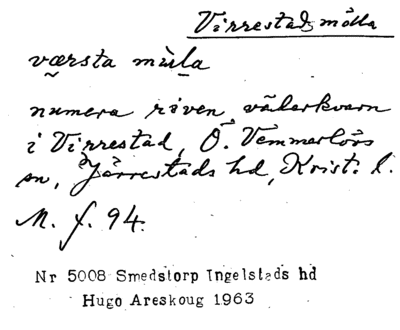 Virrestads mölla
værsta mùla
numera riven väderkvarn
i Virrestad, Ö. Vemmerlövs
sn, Järrestads hd, Krist. l.
M. f. 94.
Nr 5008 Smedstorp Ingelstads hd
Hugo Areskoug 1963